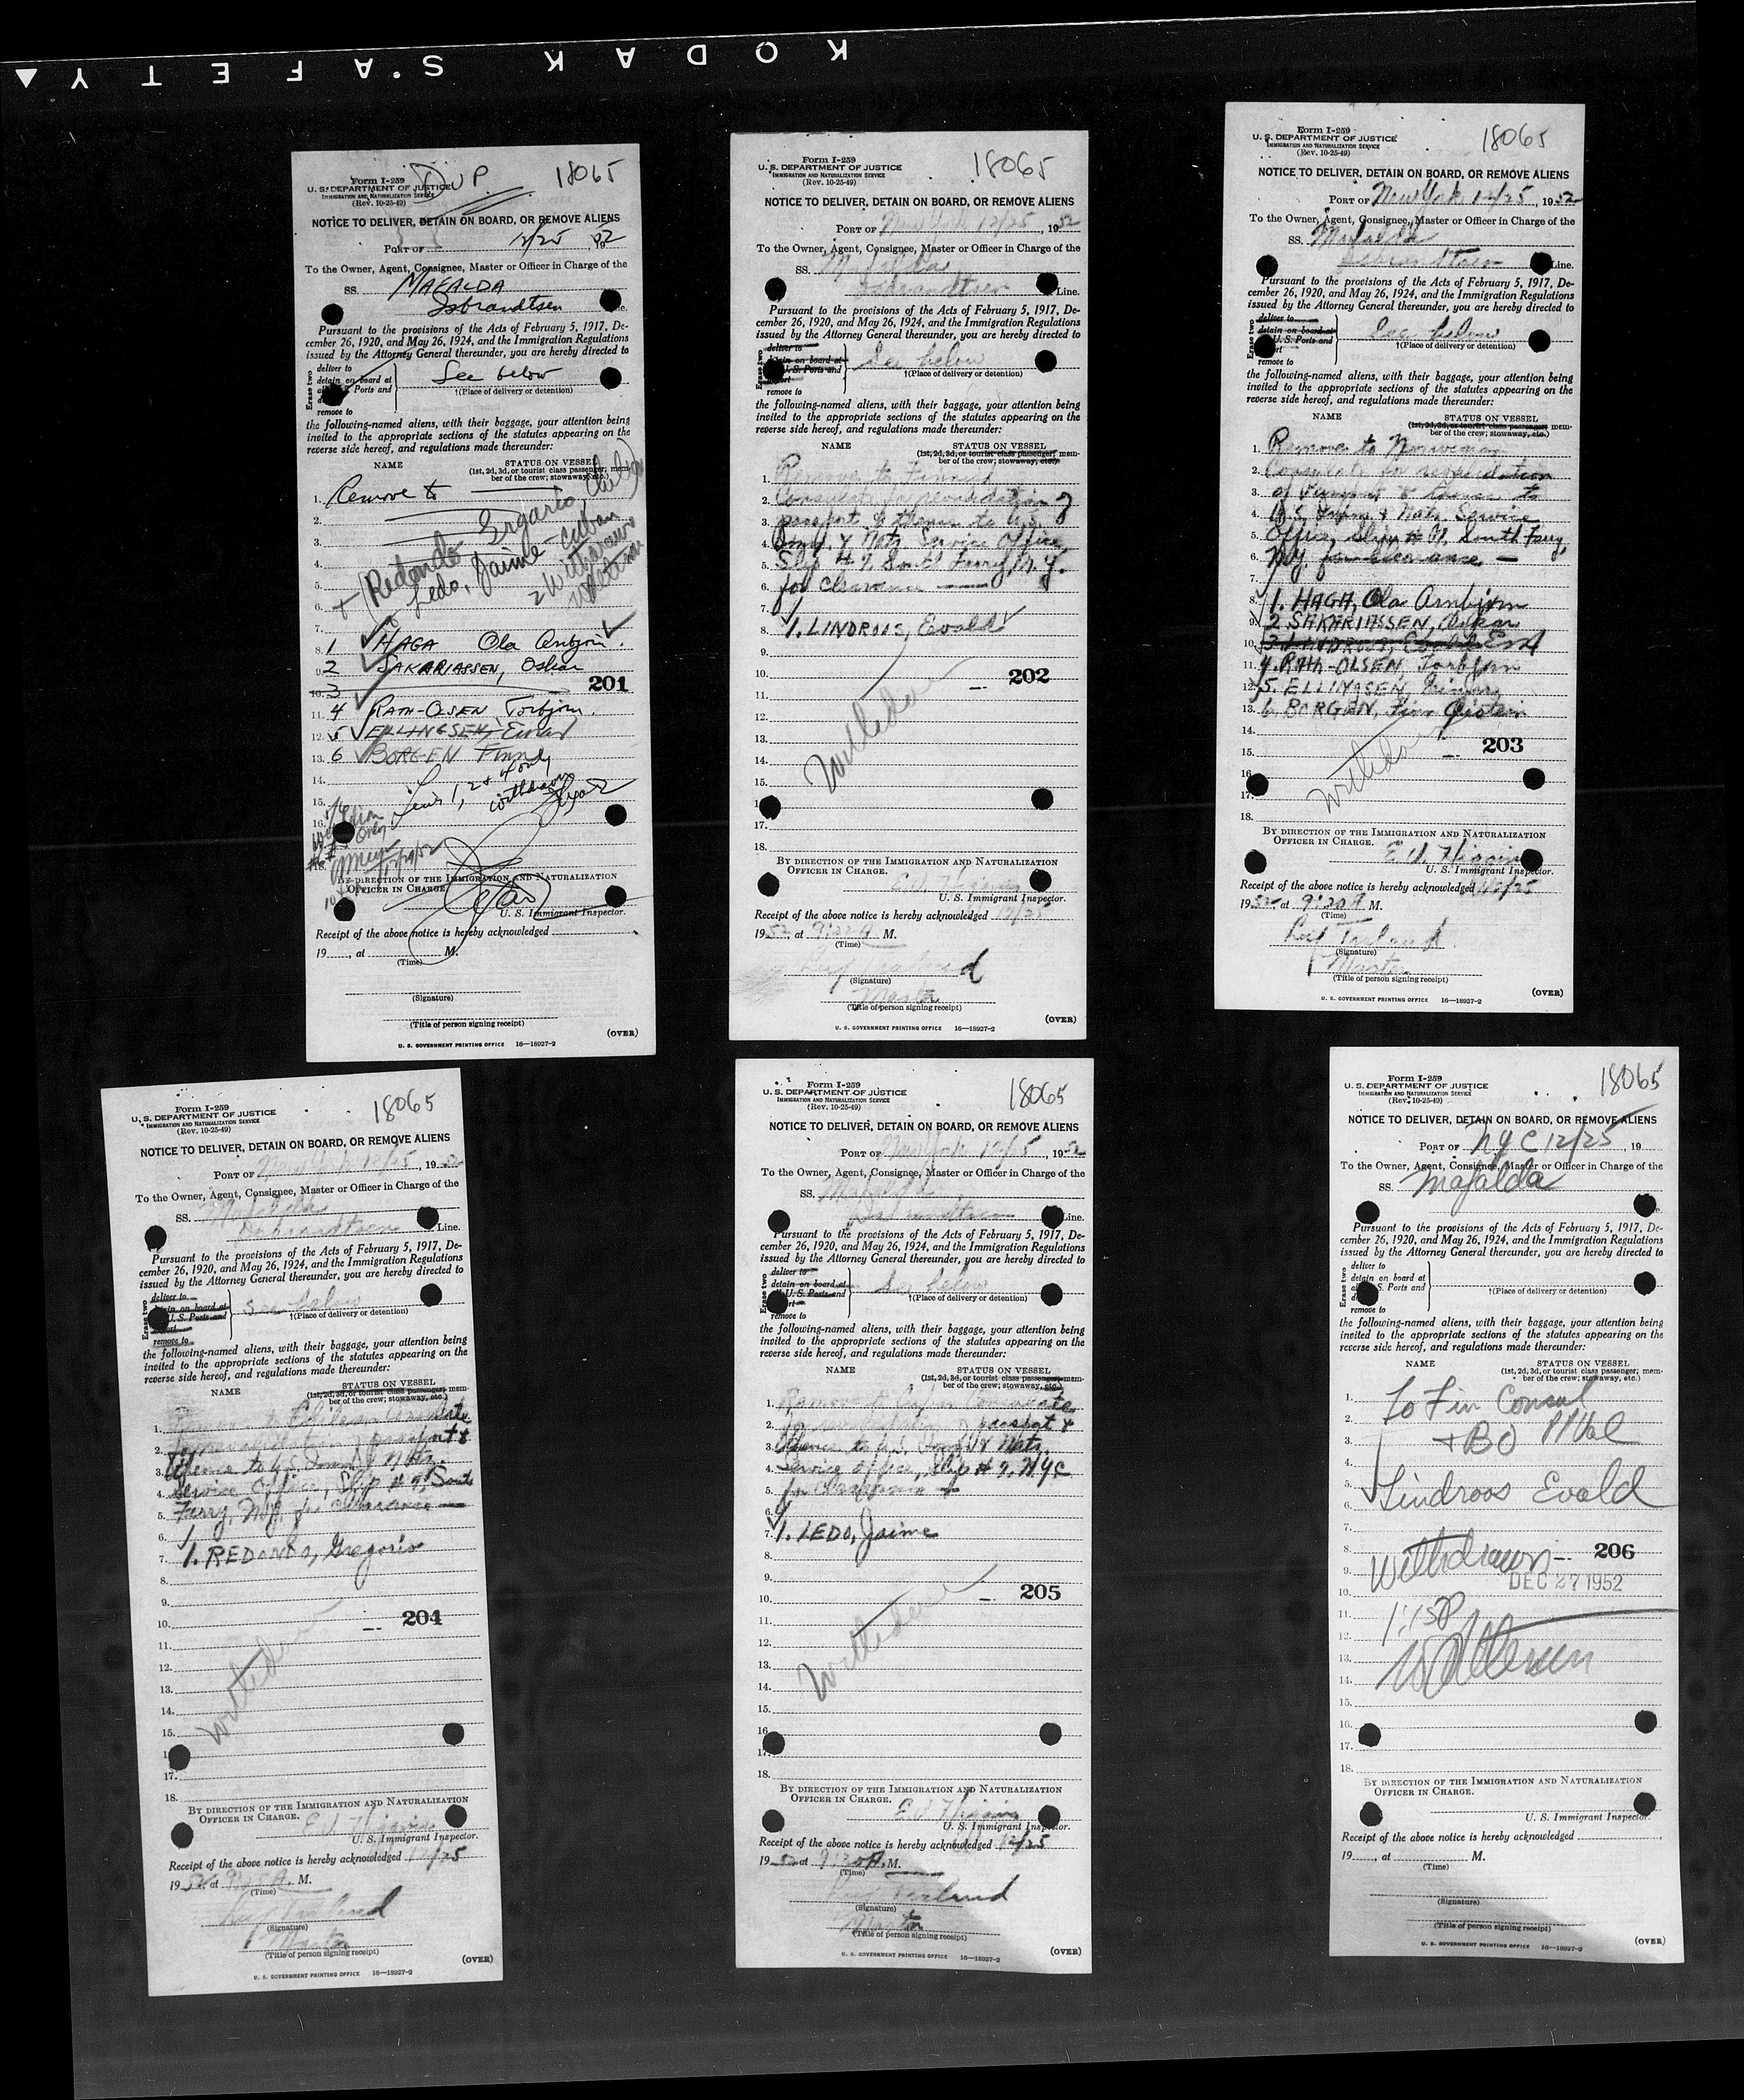 KODAK SAFETY
Form I-259
U. S. DEPARTMENT OF JUSTICE
IMMIGRATION AND NATURALIZATION SERVICE
(Rev. 10-25-49)
DUP.
18065
NOTICE TO DELIVER, DETAIN ON BOARD, OR REMOVE ALIENS
PORT OF 12/25, 1952
To the Owner, Agent, Consignee, Master or Officer in Charge of the
SS. MAFALDA
Isbrandtsen
Pursuant to the provisions of the Acts of February 5, 1917, De-
cember 26, 1920, and May 26, 1924, and the Immigration Regulations
issued by the Attorney General thereunder, you are hereby directed to
Erase two
deliver to
detain on board at
U.S. Ports and
remove to
See below
†(Place of delivery or detention)
the following-named aliens, with their baggage, your attention being
invited to the appropriate sections of the statutes appearing on the
reverse side hereof, and regulations made thereunder:
NAME STATUS ON VESSEL
(1st, 2d, 3d, or tourist class passenger; mem-
ber of the crew; stowaway, etc.)
1. Remove to
2.
3.
4.
5.
6.
+ Redondo
Ledo, Jaime - Cuban
2 withdrawn
7.
8. 1 HAGA Ola
9. 2 SAKARIASSEN, Oskar
10. 3
201
11. 4 RATH-OLSEN Torbjorn.
12. 5 ELLINGSEN, Einar
13. 6 BORGEN Finn
14.
15.
1, 2 & 4 only
withdrawn
16.
BY DIRECTION OF THE IMMIGRATION AND NATURALIZATION
OFFICER IN CHARGE
U. S. Immigrant Inspector.
Receipt of the above notice is hereby acknowledged
19, at M.
(Time)
(Signature)
(Title of person signing receipt)
(OVER)
U. S. GOVERNMENT PRINTING OFFICE 16—18927-2
Form I-259
U. S. DEPARTMENT OF JUSTICE
IMMIGRATION AND NATURALIZATION SERVICE
(Rev. 10-25-49)
18065
NOTICE TO DELIVER, DETAIN ON BOARD, OR REMOVE ALIENS
PORT OF New York 12/25, 1952
To the Owner, Agent, Consignee, Master or Officer in Charge of the
SS. Mafalda
Isbrandtsen Line.
Pursuant to the provisions of the Acts of February 5, 1917, De-
cember 26, 1920, and May 26, 1924, and the Immigration Regulations
issued by the Attorney General thereunder, you are hereby directed to
Erase two
deliver to
detain on board at
U.S. Ports and
remove to
See below
†(Place of delivery or detention)
the following-named aliens, with their baggage, your attention being
invited to the appropriate sections of the statutes appearing on the
reverse side hereof, and regulations made thereunder:
NAME STATUS ON VESSEL
(1st, 2d, 3d, or tourist class passenger; mem-
ber of the crew; stowaway, etc.)
1. Remove to Finnish
2. Consulate for revalidation of
3. passport & thence to U.S.
4. Imm. & Natz. Service Office
5. Slip # 9, South Ferry, N.Y.
6. for clearance
7.
8. 1. LINDROOS, Evald
9.
10.
202
11.
12.
13.
14.
15.
17.
18.
BY DIRECTION OF THE IMMIGRATION AND NATURALIZATION
OFFICER IN CHARGE.
E.J. Higgins
U. S. Immigrant Inspector.
Receipt of the above notice is hereby acknowledged 12/25
1952, at 9:20 A. M.
(Time)
(Signature)
Master
(Title of person signing receipt)
(OVER)
U. S. GOVERNMENT PRINTING OFFICE 16—18927-2
Form I-259
U. S. DEPARTMENT OF JUSTICE
IMMIGRATION AND NATURALIZATION SERVICE
(Rev. 10-25-49)
18065
NOTICE TO DELIVER, DETAIN ON BOARD, OR REMOVE ALIENS
PORT OF New York 12/25, 1952
To the Owner, Agent, Consignee, Master or Officer in Charge of the
SS. Mafalda
Isbrandtsen Line.
Pursuant to the provisions of the Acts of February 5, 1917, De-
cember 26, 1920, and May 26, 1924, and the Immigration Regulations
issued by the Attorney General thereunder, you are hereby directed to
Erase two
deliver to
detain on board at
U.S. Ports and
remove to
See below
†(Place of delivery or detention)
the following-named aliens, with their baggage, your attention being
invited to the appropriate sections of the statutes appearing on the
reverse side hereof, and regulations made thereunder:
NAME STATUS ON VESSEL
(1st, 2d, 3d, or tourist class passenger; mem-
ber of the crew; stowaway, etc.)
1. Remove to Norwegian
2. Consulate for revalidation
3. of passport & thence to
4. U.S. Imm. & Natz. Service
5. Office, Slip # 9, South Ferry,
6. N.Y. for clearance —
7.
8. 1. HAGA, Ola Arnbjorn
9. 2 SAKARIASSEN, Oskar
10. 3 LINDROOS, Evald
11. 4. RATH-OLSEN, Torbjorn
12. 5. ELLINGSEN, Einar
13. 6. BORGEN, Finn Oistein
14.
15.
203
16.
17.
18.
BY DIRECTION OF THE IMMIGRATION AND NATURALIZATION
OFFICER IN CHARGE.
E.J. Higgins
U. S. Immigrant Inspector.
Receipt of the above notice is hereby acknowledged 12/25
1952, at 9:20 A M.
(Time)
(Signature)
Master
(Title of person signing receipt)
(OVER)
U. S. GOVERNMENT PRINTING OFFICE 16—18927-2
Form I-259
U. S. DEPARTMENT OF JUSTICE
IMMIGRATION AND NATURALIZATION SERVICE
(Rev. 10-25-49)
18065
NOTICE TO DELIVER, DETAIN ON BOARD, OR REMOVE ALIENS
PORT OF New York 12/25, 1952
To the Owner, Agent, Consignee, Master or Officer in Charge of the
SS. Mafalda
Isbrandtsen Line.
Pursuant to the provisions of the Acts of February 5, 1917, De-
cember 26, 1920, and May 26, 1924, and the Immigration Regulations
issued by the Attorney General thereunder, you are hereby directed to
Erase two
deliver to
detain on board at
U.S. Ports and
remove to
See below
†(Place of delivery or detention)
the following-named aliens, with their baggage, your attention being
invited to the appropriate sections of the statutes appearing on the
reverse side hereof, and regulations made thereunder:
NAME STATUS ON VESSEL
(1st, 2d, 3d, or tourist class passenger; mem-
ber of the crew; stowaway, etc.)
1. Remove to Chilean Consulate
2. for revalidation of passport &
3. thence to U.S. Imm. & Natz.
4. Service Office, Slip # 9, South
5. Ferry, N.Y. for clearance —
6.
7. 1. REDONDO, Gregorio
8.
9.
10.
204
11.
12.
13.
14.
15.
17.
18.
BY DIRECTION OF THE IMMIGRATION AND NATURALIZATION
OFFICER IN CHARGE.
E.J. Higgins
U. S. Immigrant Inspector.
Receipt of the above notice is hereby acknowledged 12/25
1952, at A. M.
(Time)
(Signature)
Master
(Title of person signing receipt)
(OVER)
U. S. GOVERNMENT PRINTING OFFICE 16—18927-2
Form I-259
U. S. DEPARTMENT OF JUSTICE
IMMIGRATION AND NATURALIZATION SERVICE
(Rev. 10-25-49)
18065
NOTICE TO DELIVER, DETAIN ON BOARD, OR REMOVE ALIENS
PORT OF New York 12/25, 1952
To the Owner, Agent, Consignee, Master or Officer in Charge of the
SS. Mafalda
Isbrandtsen Line.
Pursuant to the provisions of the Acts of February 5, 1917, De-
cember 26, 1920, and May 26, 1924, and the Immigration Regulations
issued by the Attorney General thereunder, you are hereby directed to
Erase two
deliver to
detain on board at
U.S. Ports and
remove to
See below
†(Place of delivery or detention)
the following-named aliens, with their baggage, your attention being
invited to the appropriate sections of the statutes appearing on the
reverse side hereof, and regulations made thereunder:
NAME STATUS ON VESSEL
(1st, 2d, 3d, or tourist class passenger; mem-
ber of the crew; stowaway, etc.)
1. Remove to Cuban Consulate
2. for revalidation of passport &
3. thence to U.S. Imm. & Natz.
4. Service Office, Slip # 9, NYC
5. for clearance
6.
7. 1. LEDO, Jaime
8.
9.
205
10.
11.
12.
13.
14.
15.
16.
17.
18.
BY DIRECTION OF THE IMMIGRATION AND NATURALIZATION
OFFICER IN CHARGE.
E.J. Higgins
U. S. Immigrant Inspector.
Receipt of the above notice is hereby acknowledged 12/25
1952 at 9:20 A. M.
(Time)
(Signature)
Master
(Title of person signing receipt)
(OVER)
U. S. GOVERNMENT PRINTING OFFICE 16—18927-2
Form I-259
U. S. DEPARTMENT OF JUSTICE
IMMIGRATION AND NATURALIZATION SERVICE
(Rev. 10-25-49)
18065
NOTICE TO DELIVER, DETAIN ON BOARD, OR REMOVE ALIENS
PORT OF NYC 12/25, 19
To the Owner, Agent, Consignee, Master or Officer in Charge of the
SS. Mafalda
Pursuant to the provisions of the Acts of February 5, 1917, De-
cember 26, 1920, and May 26, 1924, and the Immigration Regulations
issued by the Attorney General thereunder, you are hereby directed to
Erase two
deliver to
detain on board at
U.S. Ports and
remove to
†(Place of delivery or detention)
the following-named aliens, with their baggage, your attention being
invited to the appropriate sections of the statutes appearing on the
reverse side hereof, and regulations made thereunder:
NAME STATUS ON VESSEL
(1st, 2d, 3d, or tourist class passenger; mem-
ber of the crew; stowaway, etc.)
1. To Fin Consul
2.
3. + BO
4.
5.
6. Lindroos Evald
7.
8. Withdrawn
206
9.
DEC 27 1952
10.
11.
12.
13.
14.
15.
16.
17.
18.
BY DIRECTION OF THE IMMIGRATION AND NATURALIZATION
OFFICER IN CHARGE.
U. S. Immigrant Inspector.
Receipt of the above notice is hereby acknowledged
19, at M.
(Time)
(Signature)
(Title of person signing receipt)
(OVER)
U. S. GOVERNMENT PRINTING OFFICE 16—18927-2